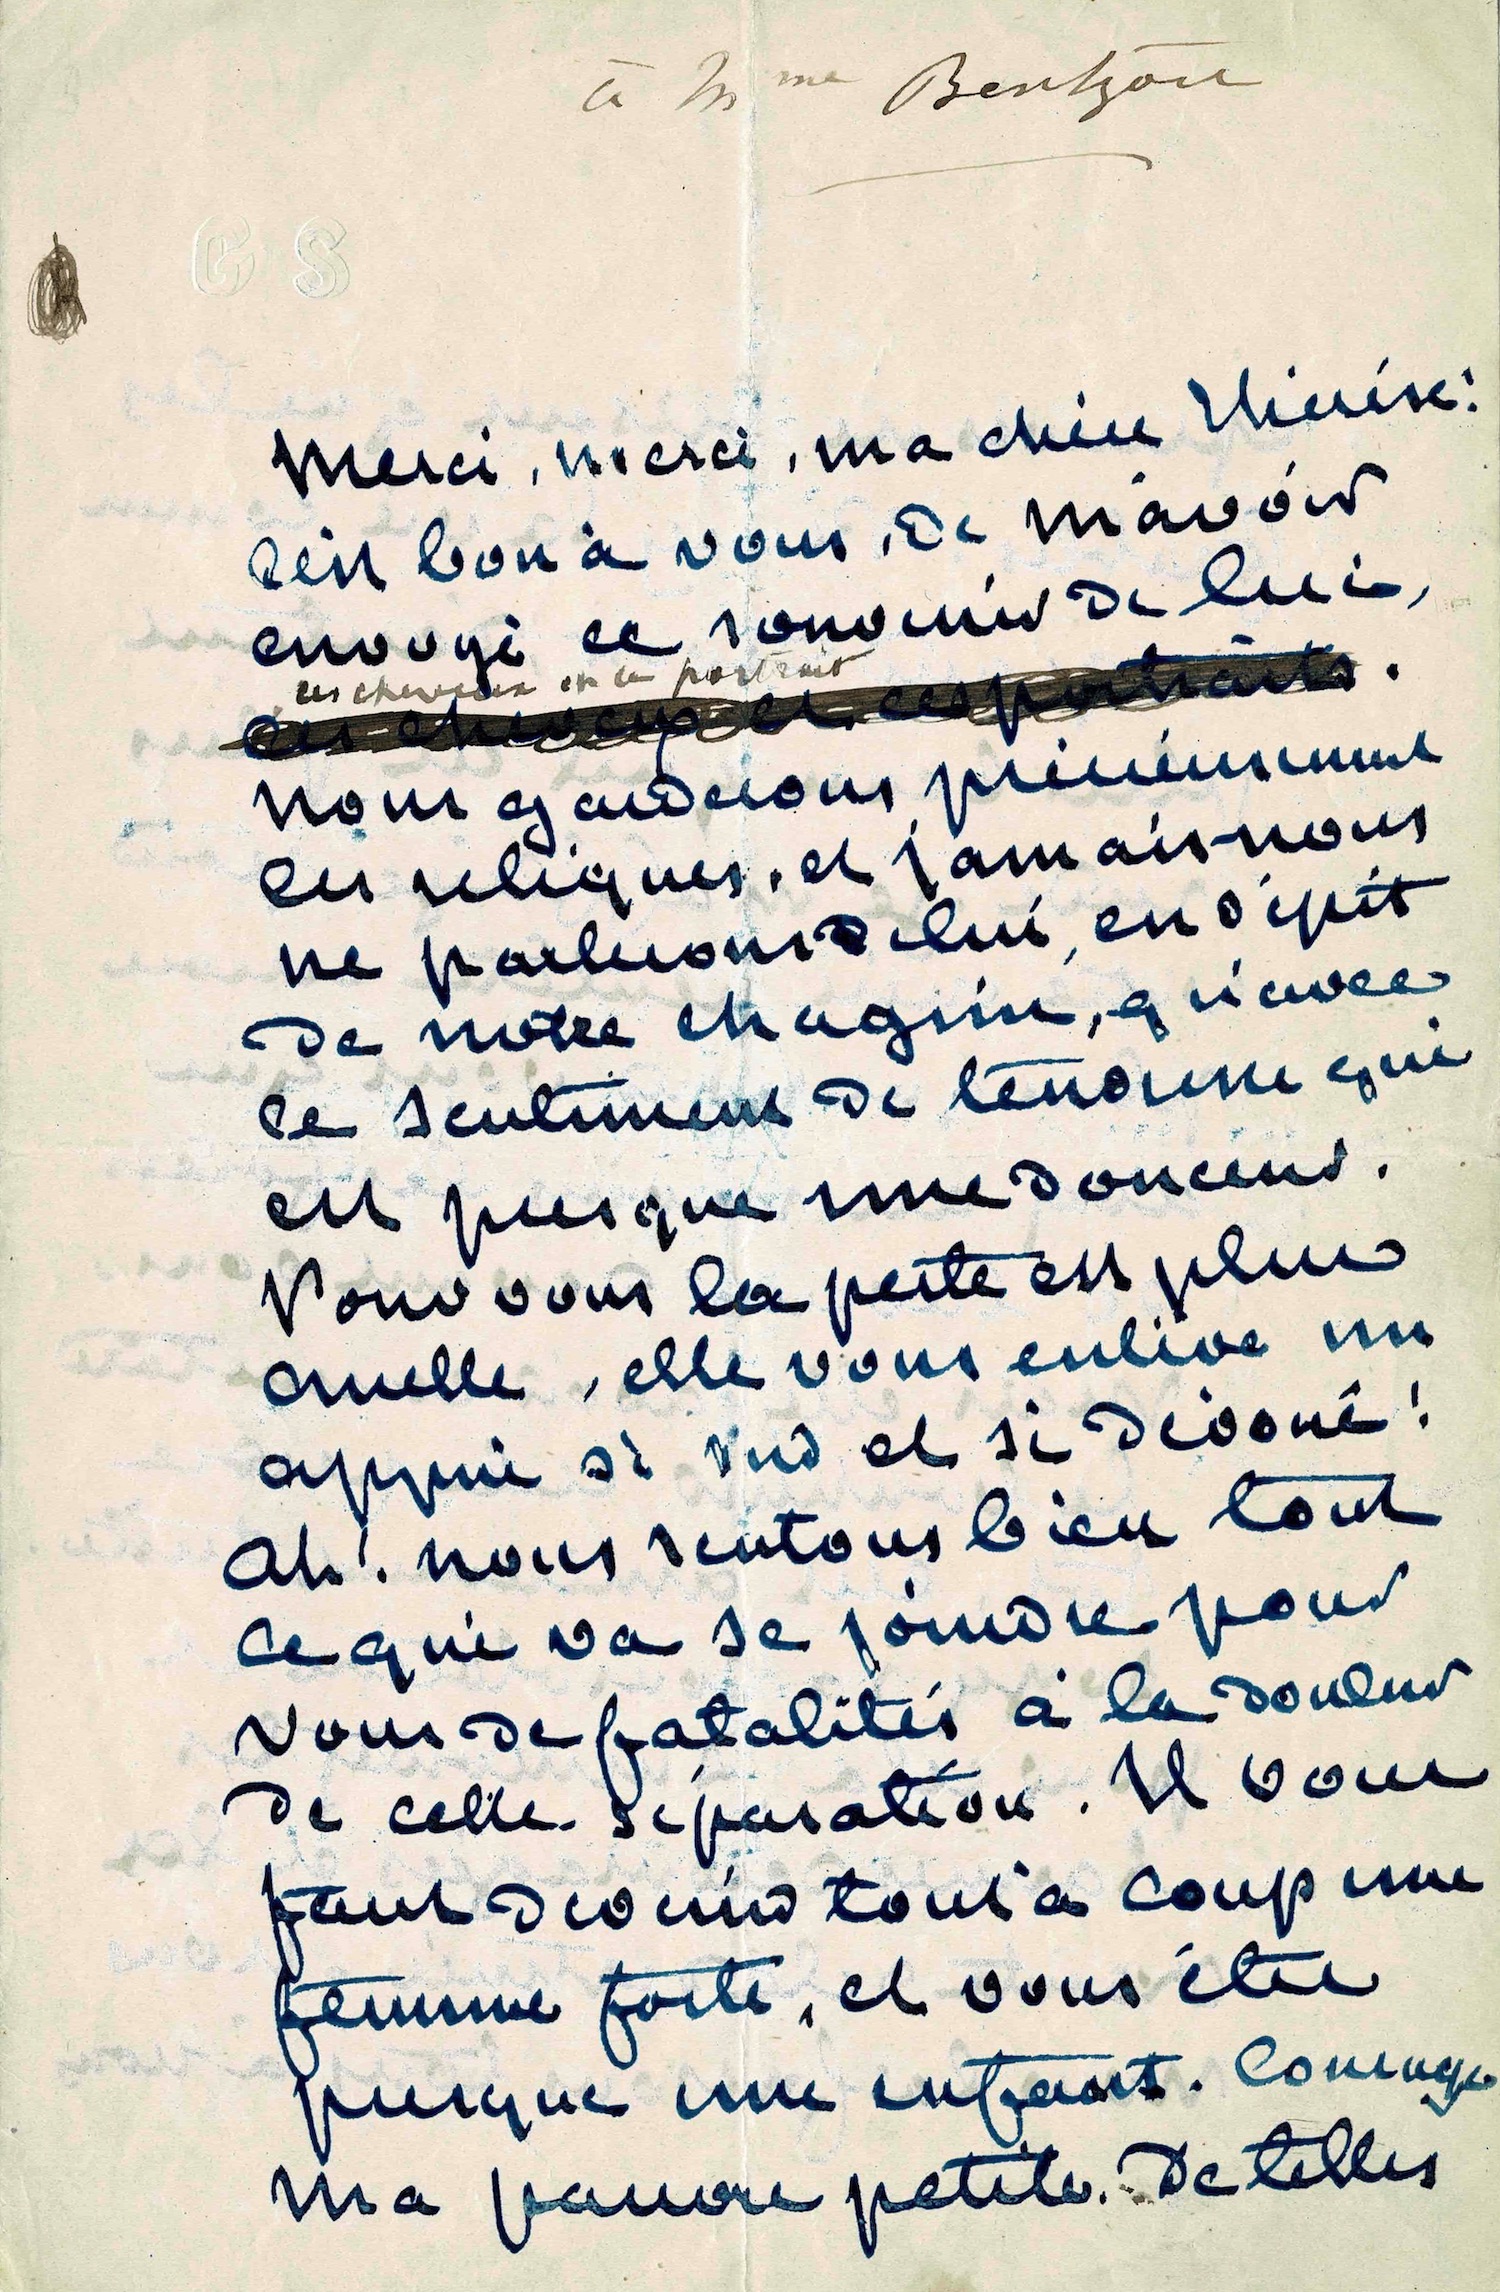 à Mme Bentzon
G S
Merci, merci, ma chère Thérèse!
c'est bon à vous, de m'avoir
envoyé ce souvenir de lui,
ces cheveux et ce portrait
ces cheveux et ces portraits.
nous garderons précieusement
ces reliques, et jamais nous
ne parlerons de lui, en dépit
de notre chagrin, qu'avec
ce sentiment de tendresse qui
est presque une douceur.
Pour vous la perte est plus
cruelle, elle vous enlève un
appui si sûr et si dévoué!
Ah! nous sentons bien tout
ce qui va se joindre pour
vous de fatalités à la douleur
de cette séparation. Il vous
faut devenir tout à coup une
femme forte, et vous étiez
presque une enfant. Courage
ma pauvre petite. De telles